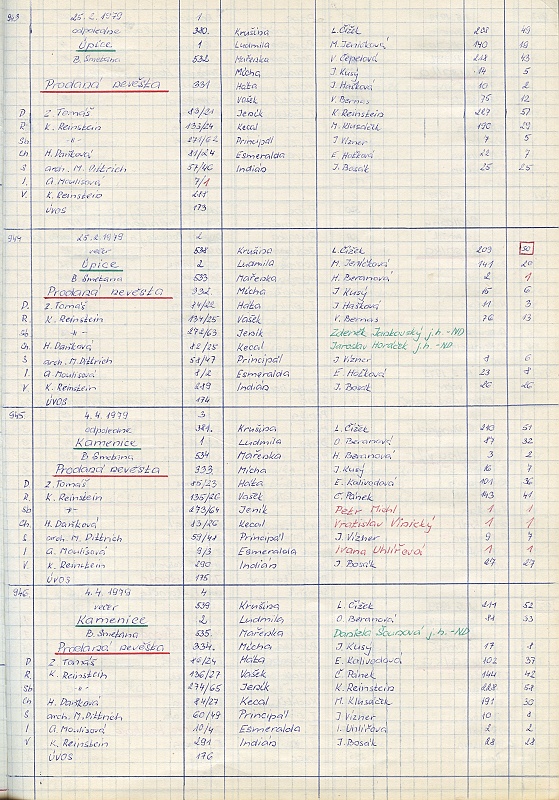 943 25. 2. 1979 1
odpoledne 380. Krušina L. Čížek 208 49
Úpice 1 Ludmila M. Jeníčková 140 19
B. Smetana 532 Mařenka V. Čepelová 218 43
Mícha J. Kusý 14 5
Prodaná nevěsta 331 Háta J. Hašková 10 2
Vašek V. Bernas 75 12
D Z. Tomáš 13/21 Jeník K. Reinstein 227 57
R K. Reinstein 133/24 Kecal M. Klusáček 190 29
Sb -"- 271/62 Principál J. Vízner 7 5
Ch H. Daňková 11/24 Esmeralda E. Hošková 22 7
S arch. M. Dittrich 57/46 Indián J. Bosák 25 25
I. A. Moulisová 7/1
V. K. Reinstein 211
ÚVOS 173
944 25. 2. 1979 2
večer 538 Krušina L. Čížek 209 50
Úpice 2 Ludmila M. Jeníčková 141 20
B. Smetana 533 Mařenka H. Beranová 2 1
Prodaná nevěsta 332 Mícha J. Kusý 15 6
D. Z. Tomáš 14/22 Háta J. Hašková 11 3
R. K. Reinstein 134/25 Vašek V. Bernas 76 13
Sb -"- 272/63 Jeník Zdeněk Jankovský j.h. - ND
Ch. H. Daňková 12/25 Kecal Jaroslav Horáček j.h. - ND
S arch. M. Dittrich 58/47 Principál J. Vízner 8 6
I. A. Moulisová 8/2 Esmeralda E. Hošková 23 8
V K. Reinstein 219 Indián J. Bosák 26 26
ÚVOS 174
945. 4. 4. 1979 3
odpoledne 381. Krušina L. Čížek 210 51
Kamenice 1 Ludmila O. Beranová 87 32
B. Smetana 534 Mařenka H. Beranová 3 2
Prodaná nevěsta 333 Mícha J. Kusý 16 7
D Z. Tomáš 15/23 Háta E. Kalivodová 101 36
R. K. Reinstein 135/26 Vašek Č. Pánek 143 41
Sb -"- 273/64 Jeník Petr Michl 1 1
Ch. H. Daňková 13/26 Kecal Vratislav Vinický 1 1
S arch. M. Dittrich 59/48 Principál J. Vízner 9 7
I A. Moulisová 9/3 Esmeralda Ivana Uhlířová 1 1
V. K. Reinstein 290 Indián J. Bosák 27 27
ÚVOS 175
946. 4. 4. 1979 4
večer 539 Krušina L. Čížek 211 52
Kamenice 2 Ludmila O. Beranová 88 33
B. Smetana 535. Mařenka Daniela Šounová j.h. - ND
Prodaná nevěsta 334. Mícha J. Kusý 17 8
D Z. Tomáš 16/24 Háta E. Kalivodová 102 37
R. K. Reinstein 136/27 Vašek Č. Pánek 144 42
Sb -"- 274/65 Jeník K. Reinstein 228 58
Ch H. Daňková 14/27 Kecal M. Klusáček 191 30
S arch. M. Dittrich 60/49 Principál J. Vízner 10 8
I A. Moulisová 10/4 Esmeralda I. Uhlířová 2 2
V K. Reinstein 291 Indián J. Bosák 28 28
ÚVOS 176